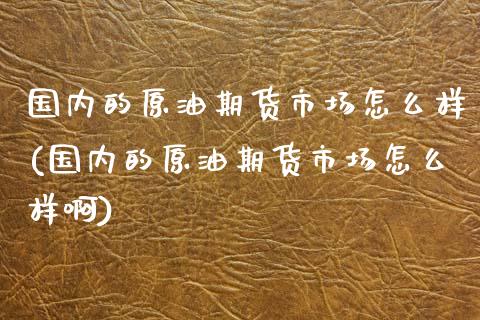 国内的原油期货市场怎么样
(国内的原油期货市场怎么
样啊)